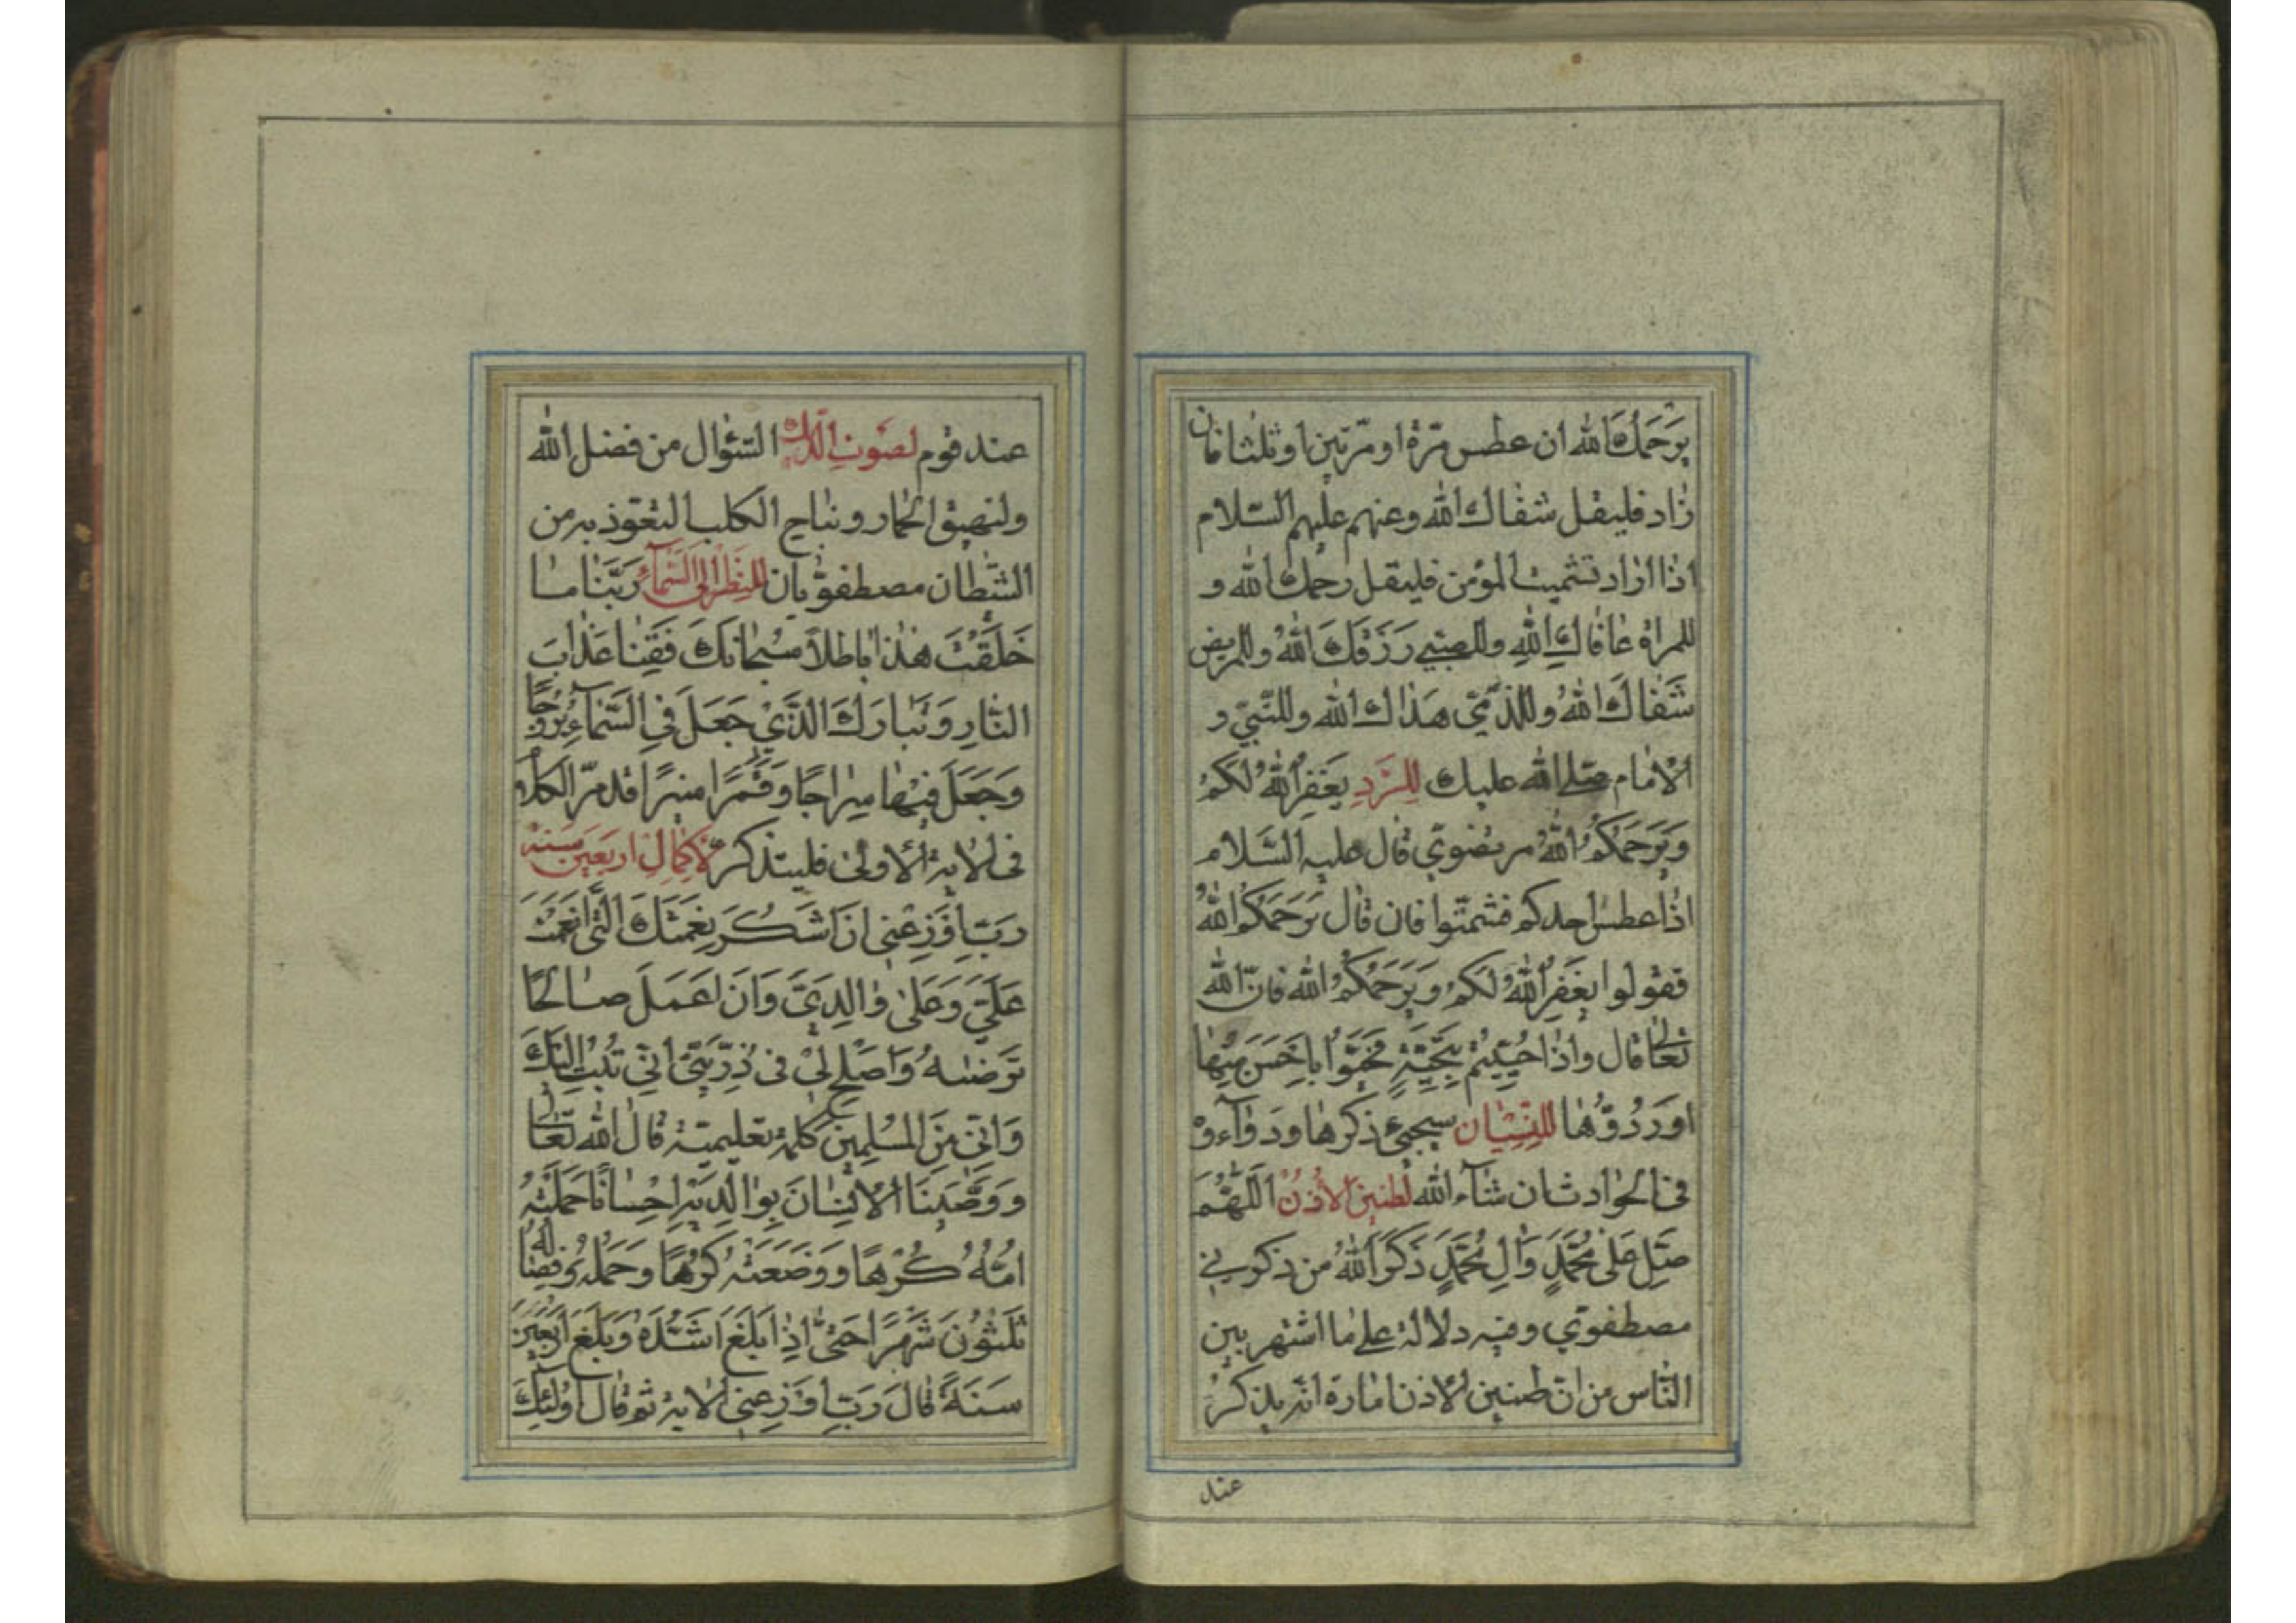 يَرْحَمُكَ الله ان عطس مرّة او مرّتين او ثلثا فان
زاد فليقل شفاك الله وعنهم عليهم السّلام
اذا اراد تشميت المؤمن فليقل رحمك الله و
للمراة عافاكِ الله وللصبيي رَزَقَكَ اللهُ وللمريض
شَفاكَ اللهُ وللذّمّيّ هَداك الله وللنّبيّ و
الامام صلى الله عليك لِلرَّدِ يَغفِرُ اللهُ لَكُمْ
وَيَرحَمُكُمُ اللهُ مرتضويّ قال عليه السّلام
اذا عطس احدكم فشمّتوا فان قال يَرحَمُكُمُ اللهُ
فقولوا يَغفِرُ اللهُ لَكُم وَيَرحَمُكُمُ الله فانّ الله
تعالى قال واذا حُيّيتُم بِتَحِيَّةٍ فَحَيُّوا بِاَحسَنَ مِنها
اورُدُّوها لِلنِّسْيان سيجيء ذكرها ودواءُ
فى الحوادث ان شآء الله لطنين الاُذُن اَللّهُمَ
صَلِّ عَلى مُحَمَّدٍ وَالِ مُحَمَّدٍ ذَكَرَ اللهُ من ذكرني
مصطفويّ وفيه دلالة على ما اشتهر بين
النّاس من انّ طنين الاذن امارة انّه يذكرُ
عند
عند قوم لصوت الديك السّؤال من فضل الله
ولنهيق الحمار ونباح الكلب التعوّذ به من
الشّيطان مصطفويان للنظر الى السّمآء رَبَّنا ما
خَلَقْتَ هذا باطلاً سُبحانَكَ فَقِنا عَذابَ
النّارِ وَتَبارَكَ الَّذي جَعَلَ فِي السَّماءِ بُرُوجًا
وَجَعَلَ فيها سِراجًا وَقَمَرًا منيرًا قد مرّ الكلام
فى الاية الاولى فليتذكر لاِكمالِ اربعين سنة
ربّ اَوْزِعْنِى اَنْ اَشْكُرَ نِعْمَتَكَ الَّتى اَنعَمْتَ
عَلَيَّ وَعَلى والِدَيَّ وَاَن اَعمَلَ صالِحًا
تَرضـٰـهُ وَاَصلِح لي فى ذُرِّيَّتى اِنّي تُبتُ اِلَيكَ
وَاِنّى مِنَ المُسْلِمينَ كلمة تعليميّة قال الله تعالى
وَوَصَّينَا الاِنسانَ بِوالِدَيهِ اِحسانًا حَمَلَتْهُ
اُمُّهُ كُرْهًا وَوَضَعَتْهُ كُرْهًا وَحَملُهُ وَفِصالُهُ
ثَلثُونَ شَهرًا حَتّى اِذا بَلَغَ اَشُدَّهُ وَبَلَغَ اَربَعينَ
سَنَةً قالَ رَبِّ اَوْزِعنى الاية ثم قال اُولئِكَ